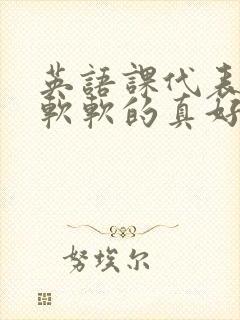 英語課代表
軟軟的真好
努埃尔